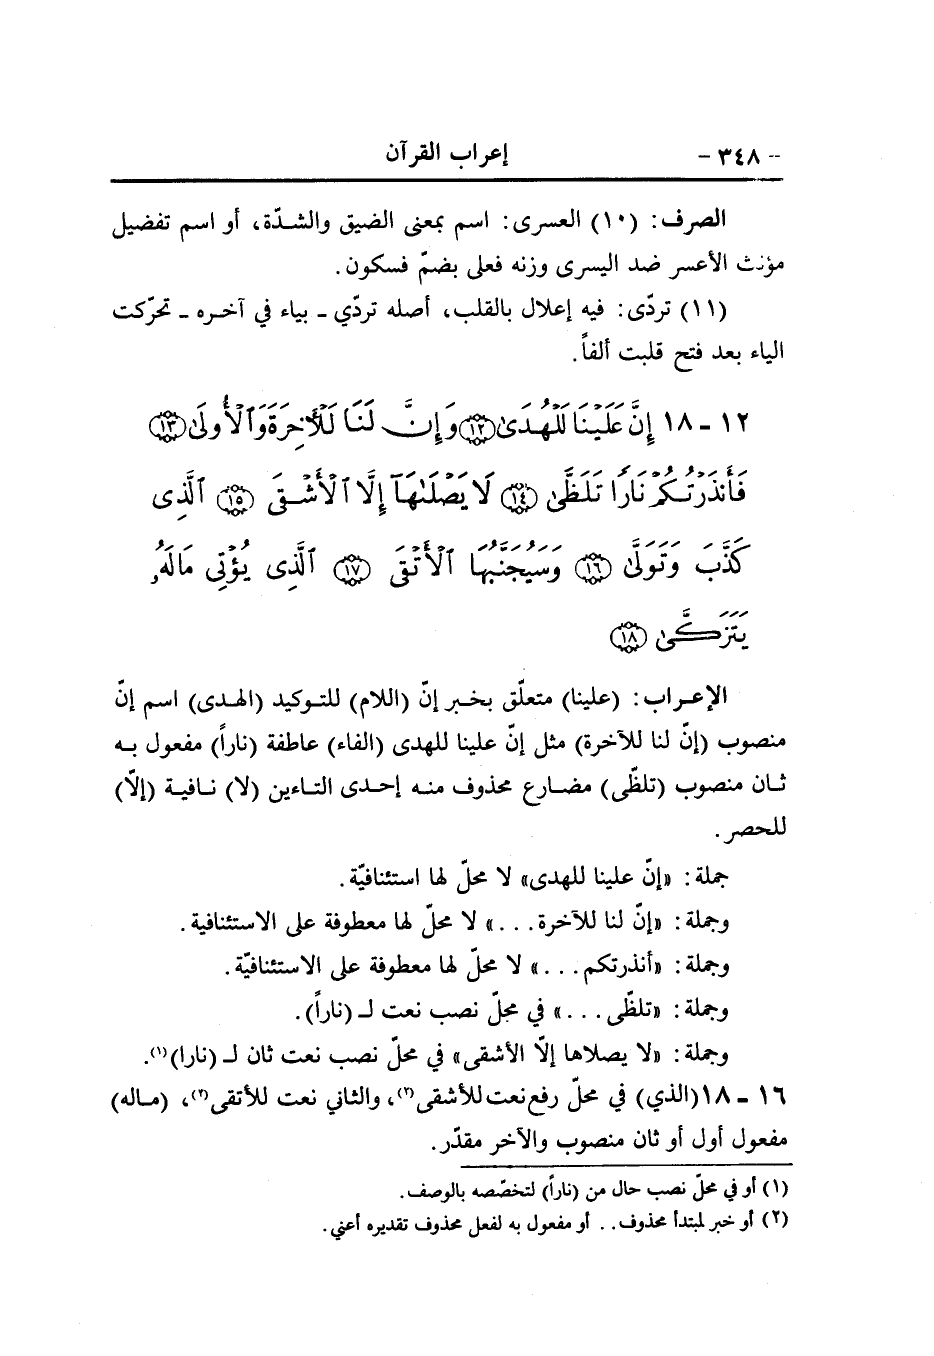 - ٣٤٨ - إعراب القرآن
الصرف: (١٠) العسرى: اسم بمعنى الضيق والشدّة، أو اسم تفضيل
مؤنث الأعسر ضد اليسرى وزنه فعلى بضمّ فسكون.
(١١) تردّى: فيه إعلال بالقلب، أصله تردّي - بياء في آخره - تحرّكت
الياء بعد فتح قلبت ألفاً.
١٢ - ١٨ إِنَّ عَلَيْنَا لَلْهُدَىٰ ١٢ وَإِنَّ لَنَا لَلْآخِرَةَ وَالْأُولَىٰ ١٣
فَأَنذَرْتُكُمْ نَارًا تَلَظَّىٰ ١٤ لَا يَصْلَىٰهَآ إِلَّا ٱلْأَشْقَى ١٥ ٱلَّذِى
كَذَّبَ وَتَوَلَّىٰ ١٦ وَسَيُجَنَّبُهَا ٱلْأَتْقَى ١٧ ٱلَّذِى يُؤْتِى مَالَهُۥ
يَتَزَكَّىٰ ١٨
الإعراب: (علينا) متعلّق بخبر إنّ (اللام) للتوكيد (الهدى) اسم إنّ
منصوب (إنّ لنا للآخرة) مثل إنّ علينا للهدى (الفاء) عاطفة (ناراً) مفعول به
ثان منصوب (تلظّى) مضارع محذوف منه إحدى التاءين (لا) نافية (إلّا)
للحصر.
جملة: «إنّ علينا للهدى» لا محلّ لها استئنافيّة.
وجملة: «إنّ لنا للآخرة...» لا محلّ لها معطوفة على الاستئنافية.
وجملة: «أنذرتكم...» لا محلّ لها معطوفة على الاستئنافيّة.
وجملة: «تلظّى...» في محلّ نصب نعت لـ (ناراً).
وجملة: «لا يصلاها إلّا الأشقى» في محلّ نصب نعت ثان لـ (نارا)(١).
١٦ - ١٨ (الذي) في محلّ رفع نعت للأشقى(٢)، والثاني نعت للأتقى(٢)، (ماله)
مفعول أول أو ثان منصوب والآخر مقدّر.
(١) أو في محلّ نصب حال من (ناراً) لتخصّصه بالوصف.
(٢) أو خبر لمبتدأ محذوف.. أو مفعول به لفعل محذوف تقديره أعني.